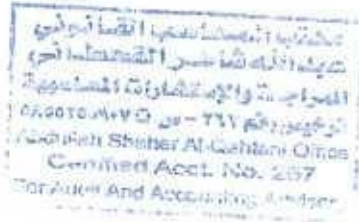 مكتب المحاسب القانوني
عبدالله شاهر القحطاني
للمراجعة والإستشارات المحاسبية
ترخيص رقم
Abdullah Shaher Al-Qahtani Office
Certified Acct. No. 267
For Audit And Accounting